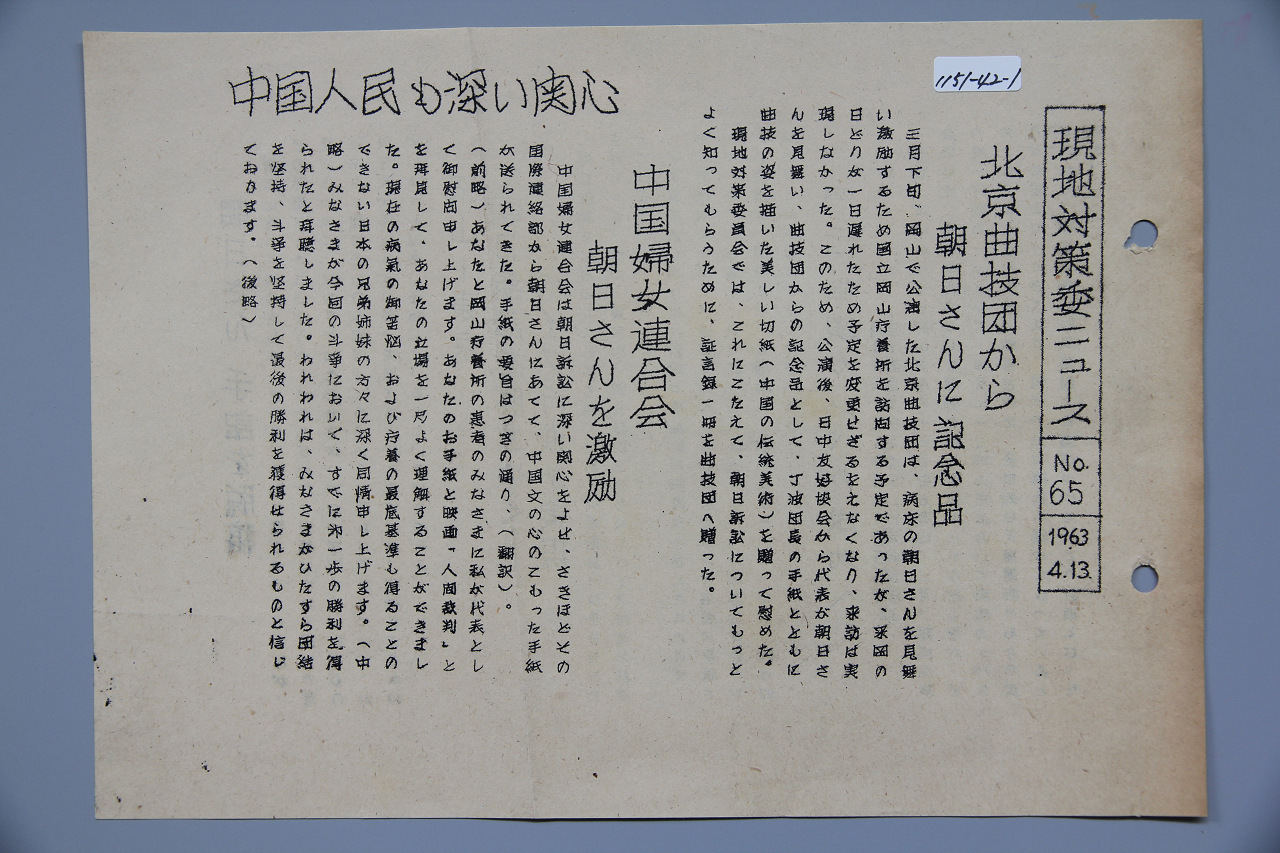 1151-42-1
現地対策委ニュース
No.
65
1963
4.13.
北京曲技団から
朝日さんに記念品
三月下旬、岡山で公演した北京曲技団は、病床の朝日さんを見舞
い激励するため国立岡山疗養所を訪問する予定であったが、来岡の
日どりが一日遅れたため予定を変更せざるをえなくなり、来訪は実
現しなかった。このため、公演後、日中友好協会から代表が朝日さ
んを見舞い、曲技団からの記念品として、丁波団長の手紙とともに
曲技の姿を描いた美しい切紙(中国の伝統美術)を贈って慰めた。
現地対策委員会では、これにこたえて、朝日訴訟についてもっと
よく知ってもらうために、証言録一冊を曲技団へ贈った。
中国人民も深い関心
中国婦女連合会
朝日さんを激励
中国婦女連合会は朝日訴訟に深い関心をよせ、さきほどその
国際連絡部から朝日さんにあてて、中国文の心のこもった手紙
が送られてきた。手紙の要旨はつぎの通り、(翻訳)。
(前略)あなたと岡山疗養所の患者のみなさまに私が代表とし
て御慰問申し上げます。あなたのお手紙と映画「人間裁判」と
を拝見して、あなたの立場を一層よく理解することができまし
た。現在の病氣の御苦悩、および疗養の最底基準も得ることの
できない日本の兄弟姉妹の方々に深く同情申し上げます。(中
略)みなさまが今回の斗争において、すでに第一歩の勝利を得
られたと拝聴しました。われわれは、みなさまがひたすら団結
を堅持、斗争を堅持して最後の勝利を獲得せられるものと信じ
ております。(後略)